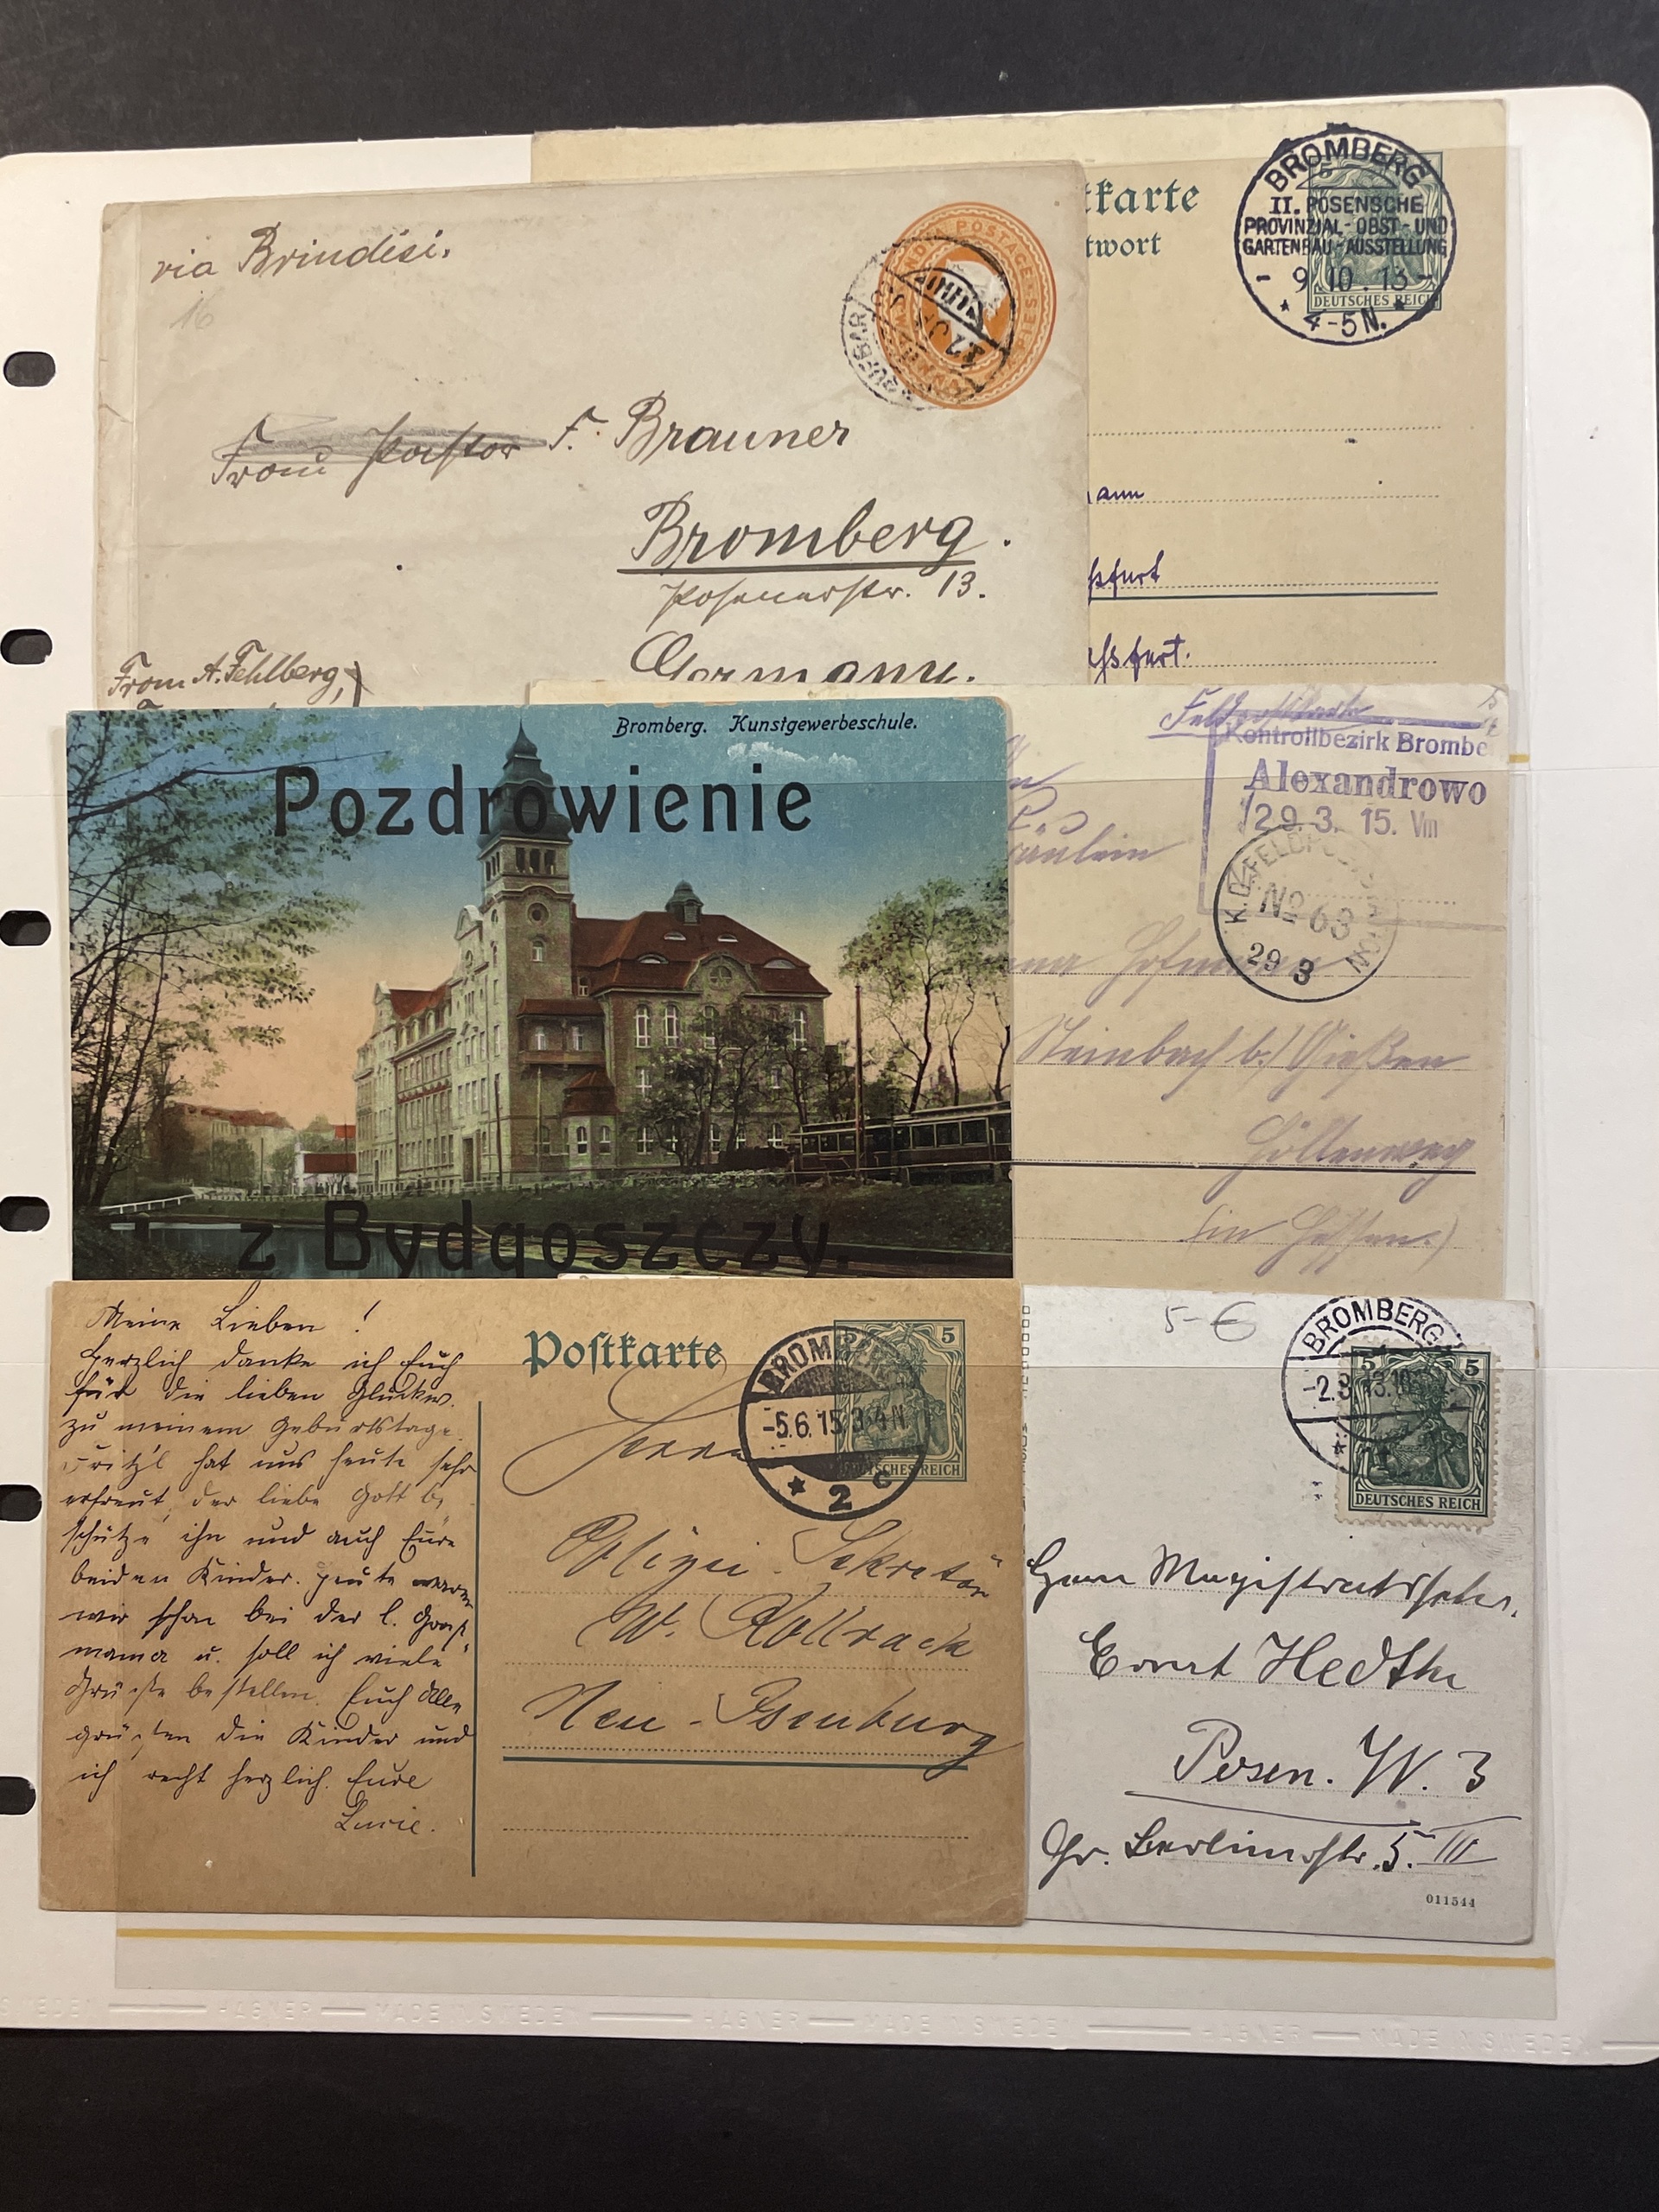 via Brindisi.
16
INDIA POSTAGE
F. Brauner
Bromberg.
Posenerstr. 13.
Germany.
From A. Fehlberg,
tkarte
twort
BROMBERG
II. POSENSCHE
PROVINZIAL-OBST-UND
GARTENBAU-AUSSTELLUNG
- 9.10.13 -
* 4-5 N. *
DEUTSCHES REICH
ann
ssfurt
ssfurt.
Bromberg. Kunstgewerbeschule.
Pozdrowienie
z Bydgoszczy.
Kontrollbezirk Brombe
Alexandrowo
29. 3. 15. Vm
K.D. FELDPOSTSTATION
No 63
29 3
Steinbach b./Gießen
(in Hessen.)
Meine Lieben!
Herzlich danke ich Euch
für die lieben Glückw.
zu meinem Geburtstage.
Fritz'l hat uns heute sehr
erfreut, der liebe Gott b,
schütze ihn und auch Eure
beiden Kinder. Heute waren
wir schon bei der l. Groß
mama u. soll ich viele
Grüße bestellen. Euch Alle
grüßen die Kinder und
ich recht herzlich. Eure
Postkarte
5
BROMBERG
-5.6.15.3-4N.
* 2 c
DEUTSCHES REICH
Herrn
Sekretär
W. Kollrack
Neu-Isenburg
5-€
BROMBERG
5 5
DEUTSCHES REICH
Herrn Magistratssekr.
Posen. W. 3
Gr. Berlinerstr. 5. III
011544
HAGNER — MADE IN SWEDEN — HAGNER — MADE IN SWEDEN — HAGNER — MADE IN SWEDEN